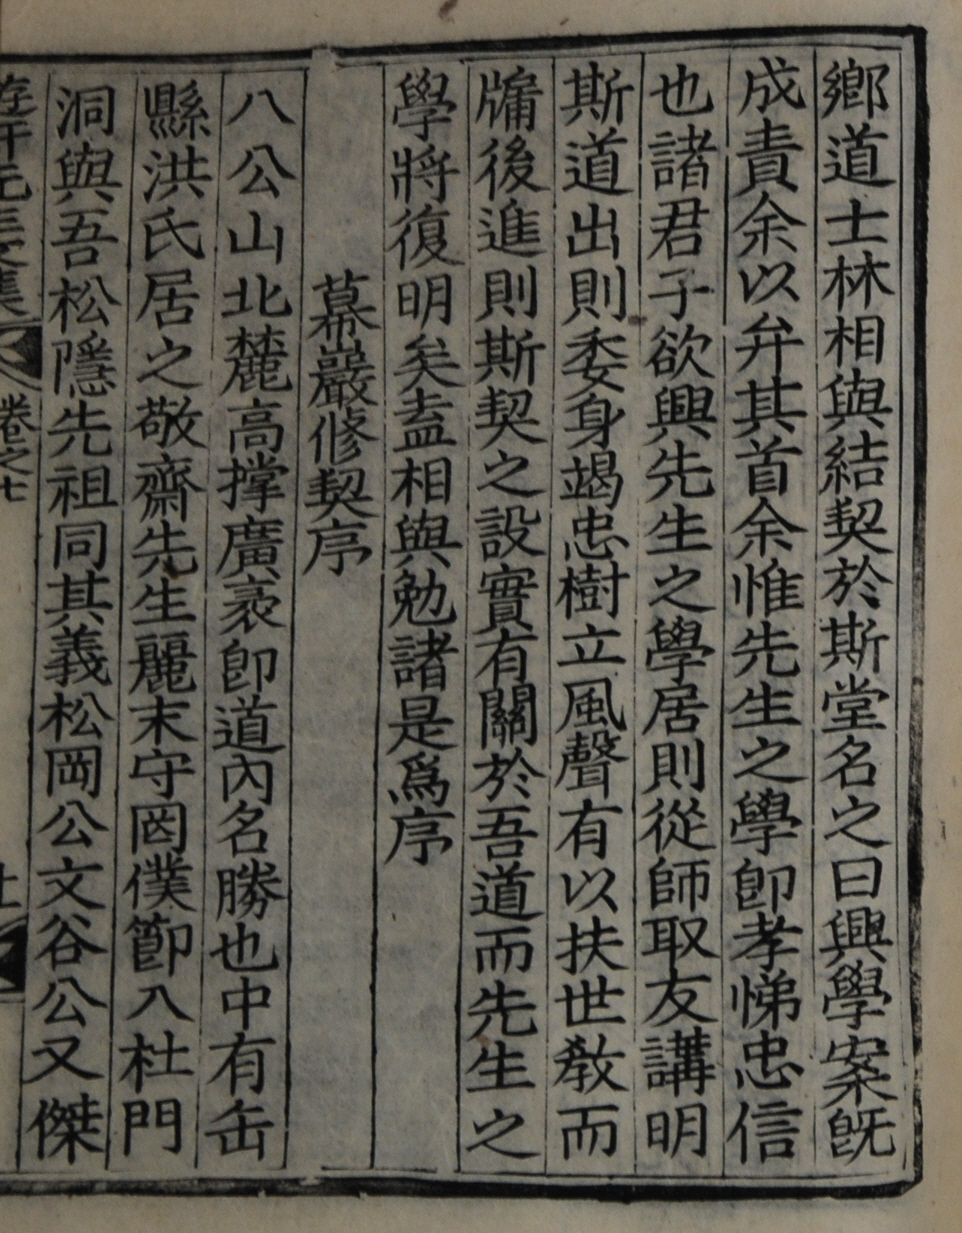 鄉道士林相與結契於斯堂名之曰興學案旣
成責余以弁其首余惟先生之學卽孝悌忠信
也諸君子欲興先生之學居則從師取友講明
斯道出則委身竭忠樹立風聲有以扶世敎而
牖後進則斯契之設實有關於吾道而先生之
學將復明矣盍相與勉諸是爲序
幕巖修契序
八公山北麓高撑廣袤卽道內名勝也中有缶
縣洪氏居之敬齋先生麗末守罔僕節入杜門
洞與吾松隱先祖同其義松岡公文谷公又傑
卷之七